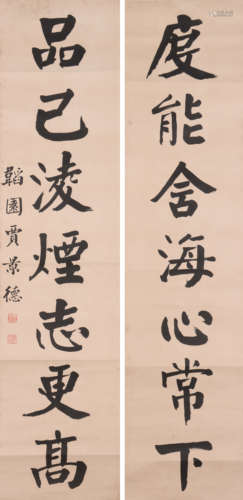 度能舍海心常下
品已淩煙志更高
韜園賈景德